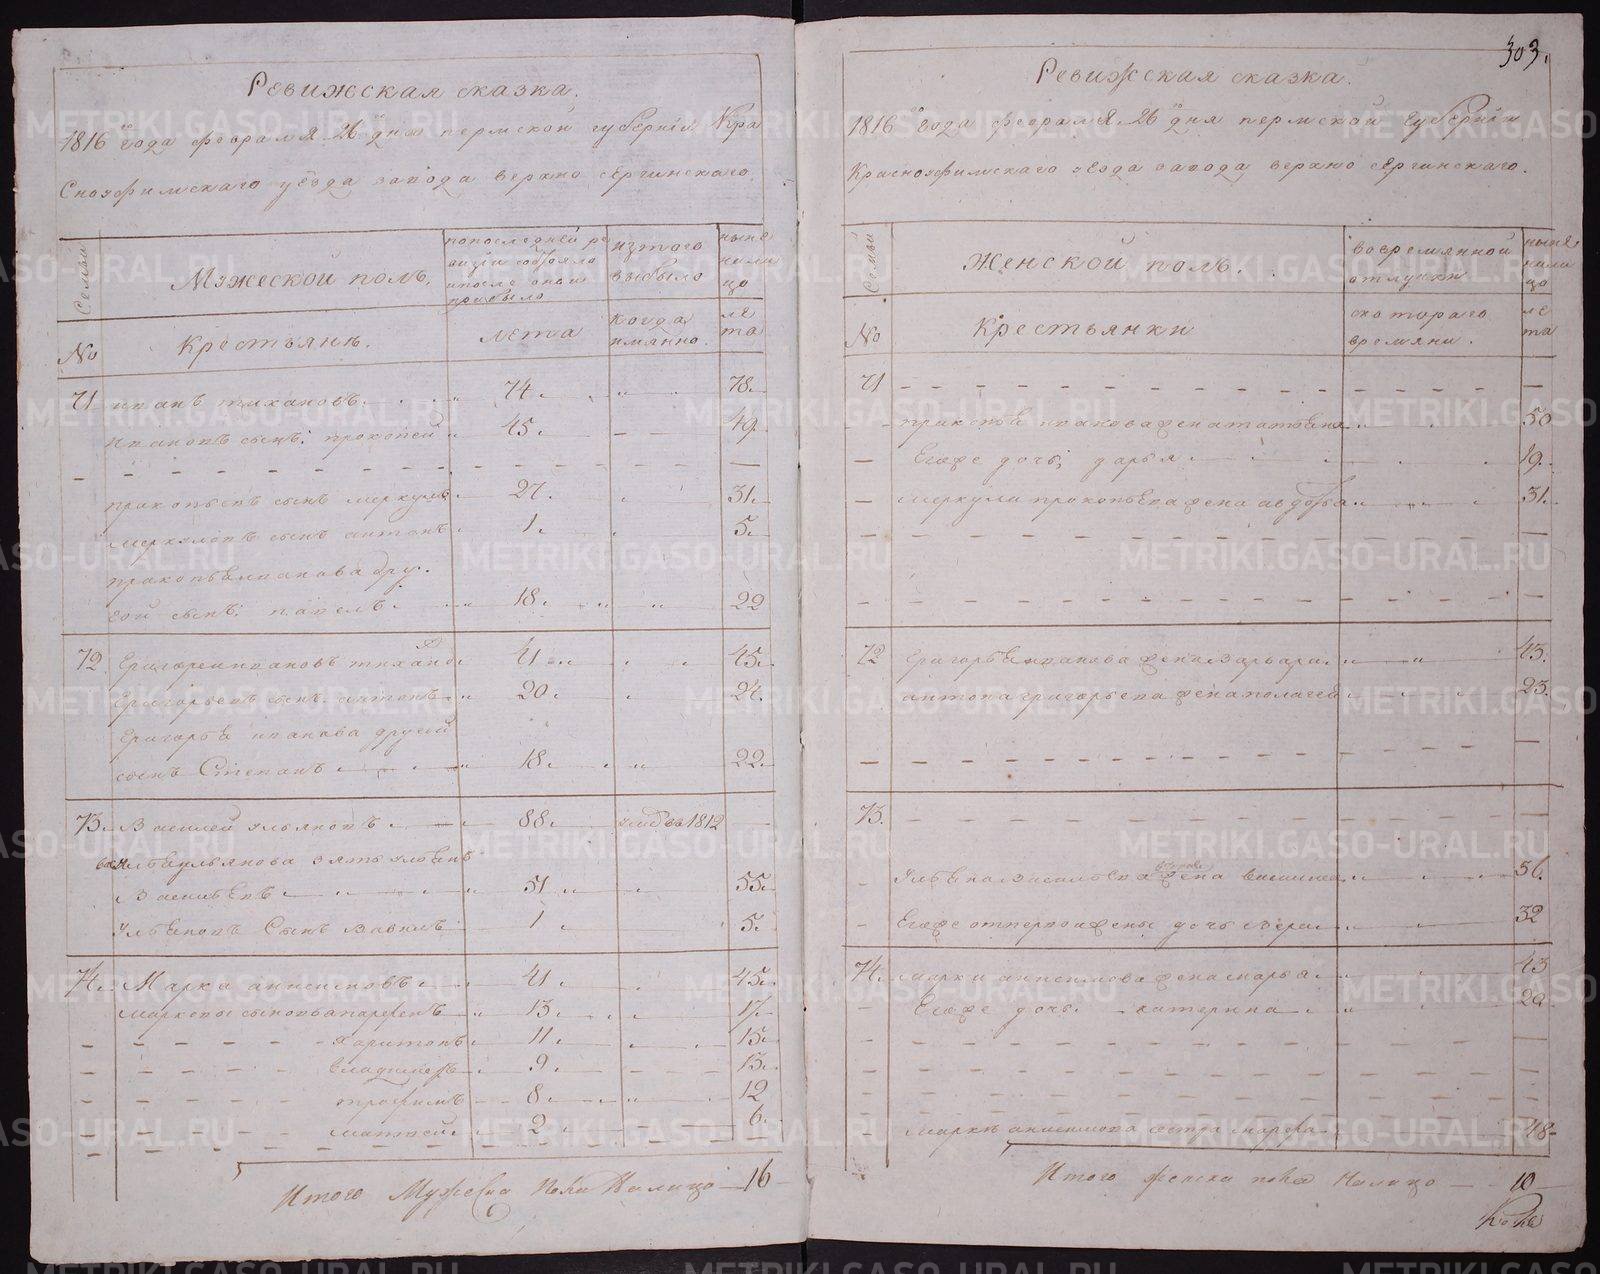 Ревижская сказка.
1816 года февраля 26 дня пермской губернiи Кра
Сноуфимскаго уезда завода верхно сергинскаго
Семьи
Мужеской полъ.
попоследней ре
визiи состояло
ипосле оной
прибыло
изтого
выбыло
ныне
нали
цо
No
Крестьянъ.
лета
когда
имянно.
ле
та
71 иванъ тихановъ 74. 78.
ивановъ сынъ: прокопей 45. 49
прокопьевъ сынъ меркулъ 27. 31.
меркуловъ сынъ антонъ 1. 5.
прокопья иванова дру.
гой сынъ: павелъ 18. 22
72 Григорей ивановъ тихано 41 45.
Григорьевъ сынъ антонъ 20. 24.
Григорья иванова другой
сынъ Степанъ 18. 22.
73. Василей ульяновъ 88. умре въ 1812
васильяульянова зять ульянъ
Васильевъ 51 55.
Ульяновъ Сынъ вавилъ 1 5.
74. Марка анисимовъ 41 45.
марковы сыновьа парфенъ 13. 17.
харитонъ 11. 15.
владимеръ 9. 13.
трофимъ 8. 12
матвей 2. 6.
Итого Мужеска пола Налицо 16
303.
Ревижская сказка.
1816 года февраля 26 дня пермской губернiи
Красноуфимскаго уезда завода верхно сергинскаго.
Семьи
Женской полъ.
вовремянной
отлучки
ныне
нали
цо
No
Крестьянки
скотораго
времяни.
ле
та
71
прокопья иванова жена татьяна 50
Егоже дочь; дарья 19.
меркула прокопьева жена авдотья 31.
72 григорья иванова жена варвара. 43.
антона григорьева жена полагея 23.
73.
Ульяна васильева вторая жена василиса 56.
Егоже отпервой жены дочь вера 32
74. марки анисимова жена марья 43
Егоже дочь. катерина 20.
марки анисимова сестра марфа 48
Итого женска пола Налицо 10
METRIKI.GASO-URAL.RU